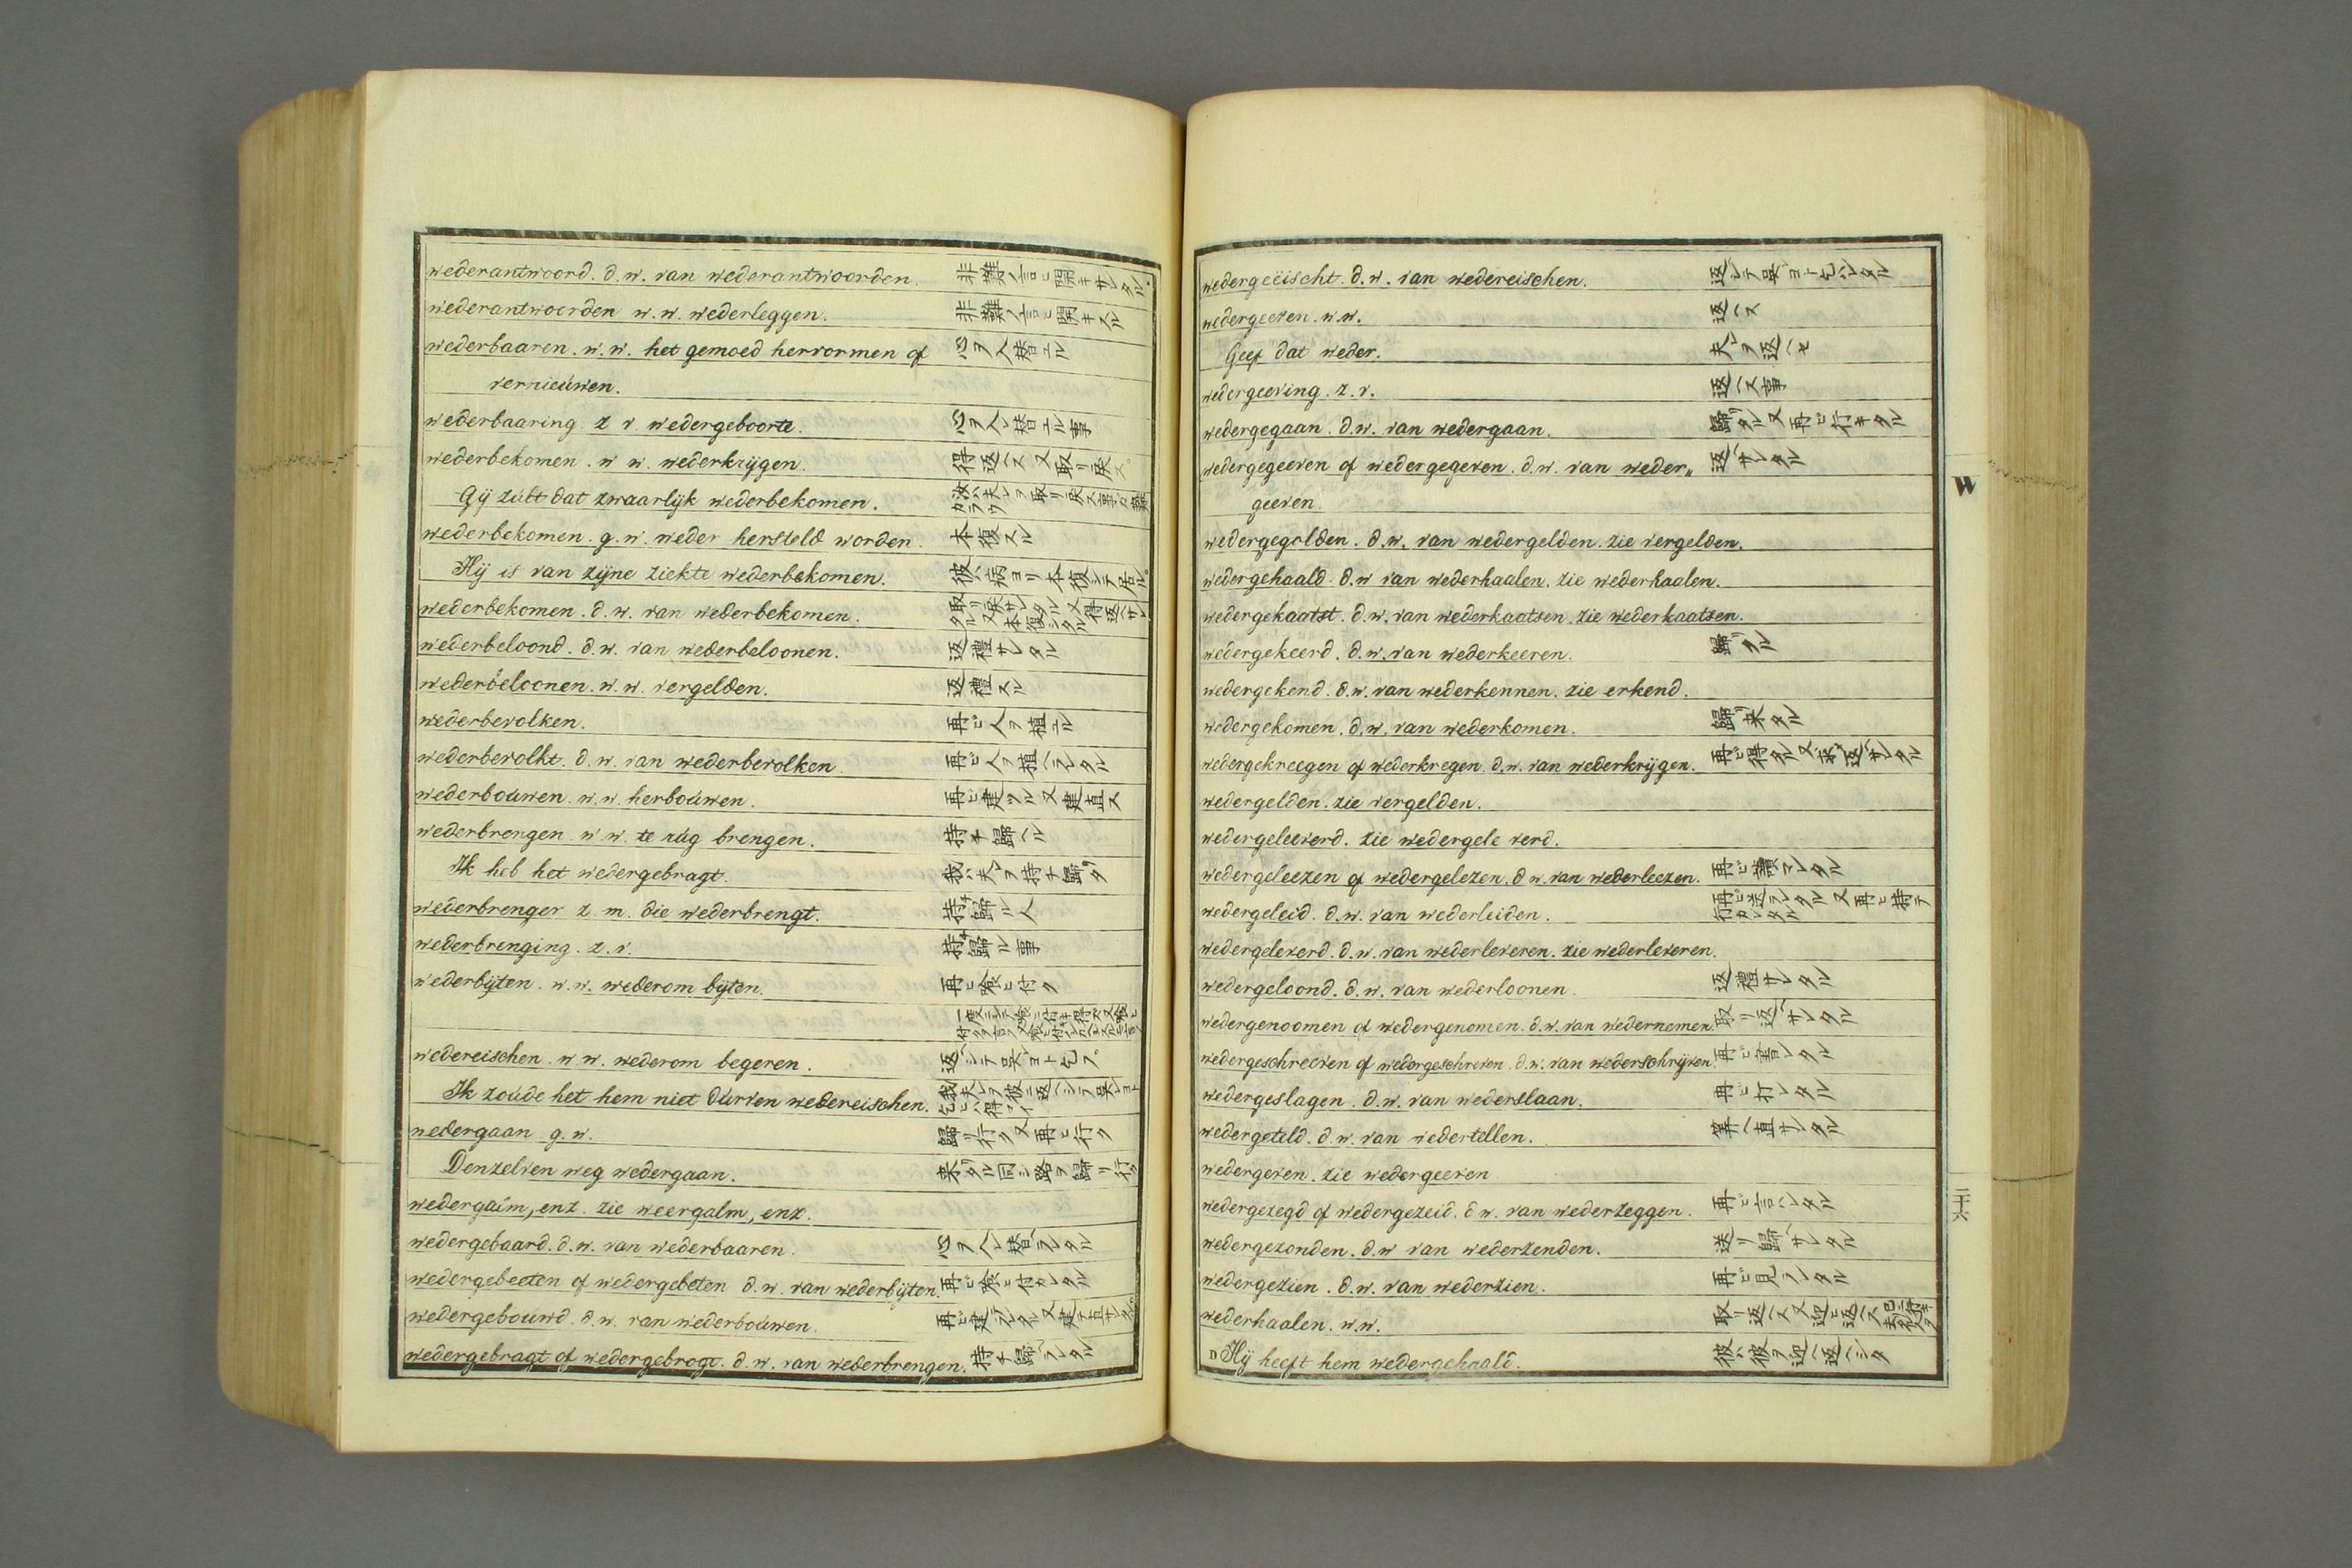 wederantwoord. d.w. van wederantwoorden. 非難ノ言ヒ開キサレタル
wederantwoorden w.w. wederleggen. 非難ノ言ヒ開キスル
wederbaaren. w.w. het gemoed hervormen of 心ヲ入替エル
vernieuwen.
wederbaaring z v wedergeboorte. 心ヲ入替エル事
wederbekomen. w w. wederkrijgen. 得返ヘス又取リ戻ス
Gij zult dat zwaarlijk wederbekomen. 汝ハ夫レヲ取リ戻ス事ガ難カラウ
wederbekomen. g.w. weder hersteld worden. 本復スル
Hij is van zijne ziekte wederbekomen. 彼ハ病ヨリ本復シテ居ル
wederbekomen. d.w. van wederbekomen. 取リ戻サレタル又得返ヘサレタル又本復シタル
wederbeloond. d.w. van wederbeloonen. 返禮サレタル
wederbeloonen. w.w. vergelden. 返禮スル
wederbevolken. 再ビ人ヲ植エル
wederbevolkt. d.w. van wederbevolken. 再ビ人ヲ植ヘラレタル
wederbouwen. w.w. herbouwen. 再ビ建ツル又建直ス
wederbrengen. w w. te rug brengen. 持チ歸ヘル
Ik heb het wedergebragt. 我ハ夫レヲ持チ歸リタ
wederbrenger z. m. die wederbrengt. 持チ歸ル人
wederbrenging. z. v. 持チ歸ル事
wederbijten. w.w. wederom bijten. 再ヒ喰ヒ付ク
wedereischen. w w. wederom begeren. 返ヘシテ呉レヨト乞フ
Ik zoude het hem niet durven wedereischen. 我夫レヲ彼ニ返ヘシテ呉レヨト乞ヒハ得マイ
wedergaan g.w. 歸リ行ク又再ヒ行ク
Denzelven weg wedergaan. 来リタル同シ路ヲ歸リ行ク
wedergalm, enz. zie weergalm, enz.
wedergebaard. d.w. van wederbaaren. 心ヲ入替ヘラレタル
wedergebeeten of wedergebeten d.w. van wederbijten. 再ビ喰ヒ付カレタル
wedergebouwd. d.w. van wederbouwen. 再ビ建ラレタル又建テ直サレタル
wedergebragt of wedergebrogt. d.w. van wederbrengen. 持チ歸ラレタル
wedergeëischt. d.w. van wedereischen. 返シテ呉レヨト乞ハレタル
wedergeeven. w.w. 返ヘス
Geef dat weder. 夫レヲ返ヘセ
wedergeeving. z. v. 返ヘス事
wedergegaan. d.w. van wedergaan. 歸リタル又再ビ行キタル
wedergegeeven of wedergegeven. d.w. van weder„ 返ヘサレタル
geeven.
wedergegolden. d.w. van wedergelden. zie vergelden.
wedergehaald. d.w van wederhaalen. zie wederhaalen.
wedergekaatst. d.w. van wederkaatsen. zie wederkaatsen.
wedergekeerd. d.w. van wederkeeren. 歸リタル
wedergekend. d.w. van wederkennen. zie erkend.
wedergekomen. d.w. van wederkomen. 歸リ来タル
wedergekreegen of wederkregen. d.w. van wederkrijgen. 再ビ得タル又求メ返ヘサレタル
wedergelden. zie vergelden.
wedergeleeverd. zie wedergeleverd.
wedergeleezen of wedergelezen. d w. van wederleezen. 再ビ讀マレタル
wedergeleid. d.w. van wederleiden. 再ビ送ラレタル又再ヒ持テ行カレタル
wedergeleverd. d.w. van wederleveren. zie wederleveren.
wedergeloond. d.w. van wederloonen. 返禮サレタル
wedergenoomen of wedergenomen. d.w. van wedernemen. 取リ返ヘサレタル
wedergeschreeven of wedergeschreven. d.w. van wederschrijven. 再ビ書レタル
wedergeslagen. d.w. van wederslaan. 再ヒ打レタル
wedergeteld. d.w. van wedertellen. 算ヘ直サレタル
wedergeven. zie wedergeeven
wedergezegd of wedergezeid. d w. van wederzeggen. 再ビ言ハレタル
wedergezonden. d.w van wederzenden. 送リ歸サレタル
wedergezien. d.w. van wederzien. 再ビ見ラレタル
wederhaalen. w.w. 取リ返ヘス又迎ヒ返ヘス
Hij heeft hem wedergehaald. 彼ハ彼ヲ迎ヘ返ヘシタ
W
二十六